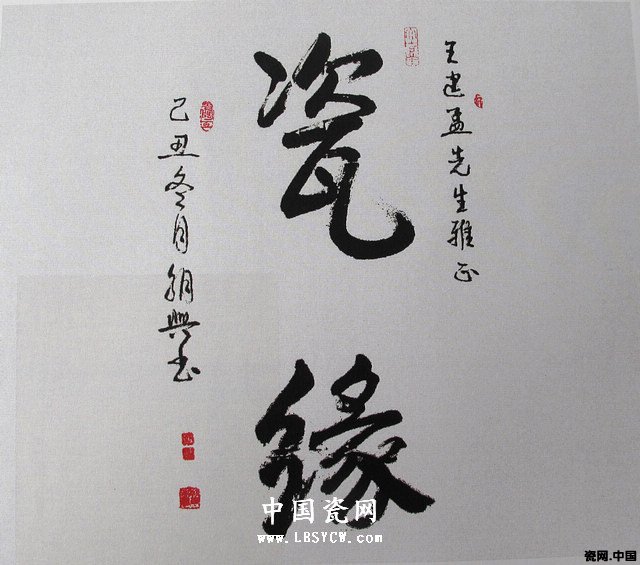 王建孟先生雅正
瓷缘
己丑冬月朝興书
中国瓷网
www.LBSYCW.com
瓷网.中国